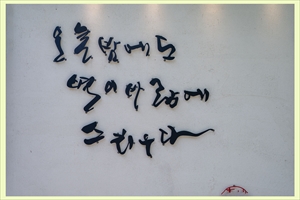 오늘밤에도
별이바람에
스치운다